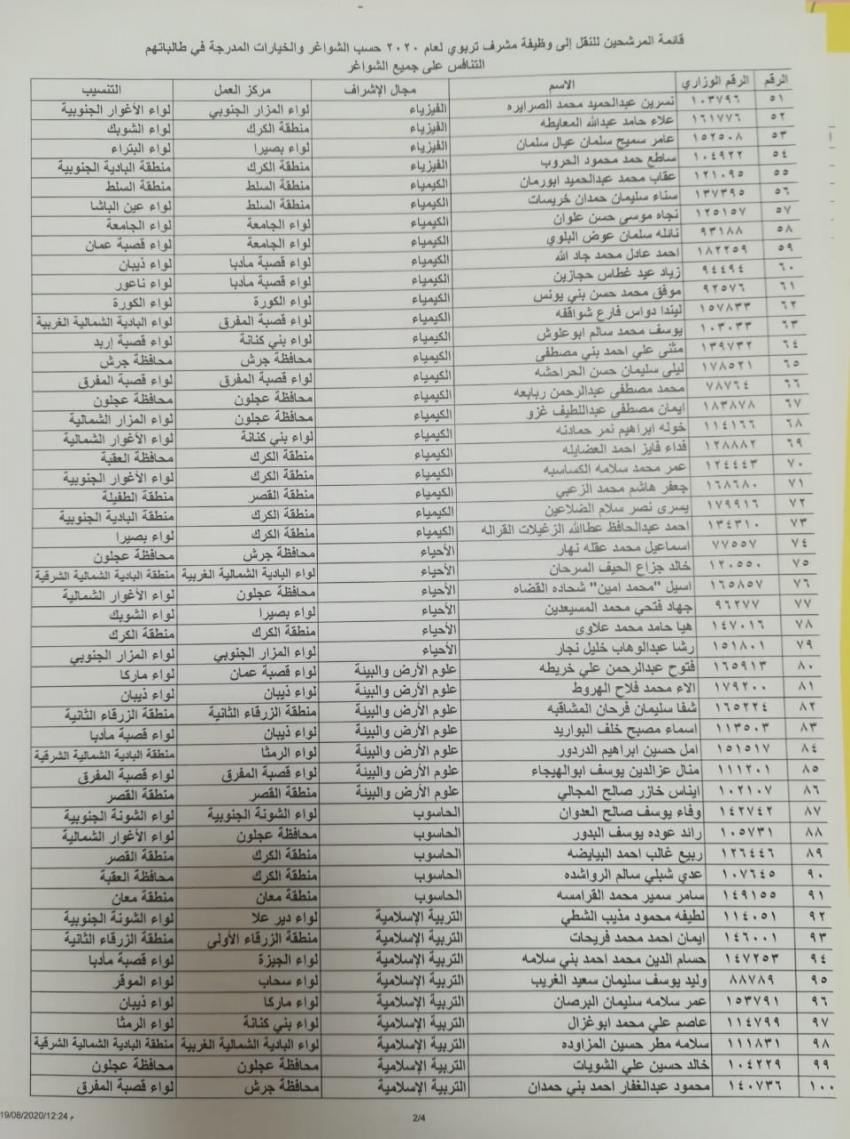 قائمة المرشحين للنقل إلى وظيفة مشرف تربوي لعام ٢٠٢٠ حسب الشواغر والخيارات المدرجة في طالباتهم
التنافس على جميع الشواغر
الرقم الرقم الوزاري الاسم مجال الإشراف مركز العمل التنسيب
٥١ ١٠٣٧٩٦ نسرين عبدالحميد محمد الصرايره الفيزياء لواء المزار الجنوبي لواء الأغوار الجنوبية
٥٢ ١٦١٧٧٦ علاء حامد عبدالله المعايطه الفيزياء منطقة الكرك لواء الشوبك
٥٣ ١٥٢٥٠٨ عامر سميح سلمان عيال سلمان الفيزياء لواء بصيرا لواء البتراء
٥٤ ١٠٤٩٢٢ ساطع حمد محمود الحروب الفيزياء منطقة الكرك منطقة البادية الجنوبية
٥٥ ١٢١٠٩٥ عقاب محمد عبدالحميد ابورمان الكيمياء منطقة السلط منطقة السلط
٥٦ ١٣٧٣٩٥ سناء سليمان حمدان خريسات الكيمياء منطقة السلط لواء عين الباشا
٥٧ ١٢٥١٥٧ نجاه موسى حسن علوان الكيمياء لواء الجامعة لواء الجامعة
٥٨ ٩٣١٨٨ نائله سلمان عوض البلوي الكيمياء لواء الجامعة لواء قصبة عمان
٥٩ ١٨٢٢٥٩ احمد عادل محمد جاد الله الكيمياء لواء قصبة مادبا لواء ذيبان
٦٠ ٩٤٤٩٤ زياد عيد غطاس حجازين الكيمياء لواء قصبة مادبا لواء ناعور
٦١ ٩٢٥٧٦ موفق محمد حسن بني يونس الكيمياء لواء الكورة لواء الكورة
٦٢ ١٥٧٨٣٣ ليندا دواس فارع شواقفه الكيمياء لواء قصبة المفرق لواء البادية الشمالية الغربية
٦٣ ١٠٣٠٣٣ يوسف محمد سالم ابوعلوش الكيمياء لواء بني كنانة لواء قصبة إربد
٦٤ ١٣٩٧٣٢ مثنى علي احمد بني مصطفى الكيمياء محافظة جرش محافظة جرش
٦٥ ١٧٨٥٢١ ليلى سليمان حسن الحراحشه الكيمياء لواء قصبة المفرق لواء قصبة المفرق
٦٦ ٧٨٧٦٤ محمد مصطفى عبدالرحمن ربابعه الكيمياء محافظة عجلون محافظة عجلون
٦٧ ١٨٣٨٧٨ ايمان مصطفى عبداللطيف غزو الكيمياء محافظة عجلون لواء المزار الشمالية
٦٨ ١١٤١٦٦ خوله ابراهيم نمر حمادنه الكيمياء لواء بني كنانة لواء الأغوار الشمالية
٦٩ ١٢٨٨٨٢ فداء فايز احمد العضايله الكيمياء منطقة الكرك محافظة العقبة
٧٠ ١٢٤٤٤٣ عمر محمد سلامه الكساسبه الكيمياء منطقة الكرك لواء الأغوار الجنوبية
٧١ ١٦٨٦٨٠ جعفر هاشم محمد الزعبي الكيمياء منطقة القصر منطقة الطفيلة
٧٢ ١٧٩٩١٦ يسرى نصر سلام الضلاعين الكيمياء منطقة الكرك منطقة البادية الجنوبية
٧٣ ١٣٤٣١٠ احمد عبدالحافظ عطاالله الزغيلات القراله الكيمياء منطقة الكرك لواء بصيرا
٧٤ ٧٧٥٥٧ اسماعيل محمد عقله نهار الأحياء محافظة جرش محافظة عجلون
٧٥ ١٢٠٥٥٠ خالد جزاع الحيف السرحان الأحياء لواء البادية الشمالية الغربية منطقة البادية الشمالية الشرقية
٧٦ ١٦٥٨٥٧ اسيل "محمد امين" شحاده القضاه الأحياء محافظة عجلون لواء الأغوار الشمالية
٧٧ ٩٦٢٧٧ جهاد فتحي محمد المسيعدين الأحياء لواء بصيرا لواء الشوبك
٧٨ ١٤٧٠١٦ هيا حامد محمد علاوى الأحياء منطقة الكرك منطقة الكرك
٧٩ ١٥١٨٠١ رشا عبدالوهاب خليل نجار الأحياء لواء المزار الجنوبي لواء المزار الجنوبي
٨٠ ١٦٥٩١٣ فتوح عبدالرحمن علي خريطه علوم الأرض والبيئة لواء قصبة عمان لواء ماركا
٨١ ١٧٩٢٠٠ الاء محمد فلاح الهروط علوم الأرض والبيئة لواء ذيبان لواء ذيبان
٨٢ ١٦٥٢٢٤ شفا سليمان فرحان المشاقبه علوم الأرض والبيئة منطقة الزرقاء الثانية منطقة الزرقاء الثانية
٨٣ ١١٣٥٠٣ اسماء مصبح خلف البواريد علوم الأرض والبيئة لواء ذيبان لواء قصبة مادبا
٨٤ ١٥١٥١٧ امل حسين ابراهيم الدردور علوم الأرض والبيئة لواء الرمثا منطقة البادية الشمالية الشرقية
٨٥ ١١١٢٠١ منال عزالدين يوسف ابوالهيجاء علوم الأرض والبيئة لواء قصبة المفرق لواء قصبة المفرق
٨٦ ١٠٢١٠٧ ايناس خازر صالح المجالي علوم الأرض والبيئة منطقة القصر منطقة القصر
٨٧ ١٤٢٧٤٢ وفاء يوسف صالح العدوان الحاسوب لواء الشونة الجنوبية لواء الشونة الجنوبية
٨٨ ١٠٥٧٣١ رائد عوده يوسف البدور الحاسوب محافظة عجلون لواء الأغوار الشمالية
٨٩ ١٢٦٤٤٦ ربيع غالب احمد البيايضه الحاسوب منطقة الكرك منطقة القصر
٩٠ ١٠٧٦٤٥ عدي شبلي سالم الرواشده الحاسوب منطقة الكرك محافظة العقبة
٩١ ١٤٩١٥٥ سامر سمير محمد القرامسه الحاسوب منطقة معان منطقة معان
٩٢ ١١٤٠٥١ لطيفه محمود مذيب الشطي التربية الإسلامية لواء دير علا لواء الشونة الجنوبية
٩٣ ١٤٦٠٠١ ايمان احمد محمد فريحات التربية الإسلامية منطقة الزرقاء الأولى منطقة الزرقاء الثانية
٩٤ ١٤٧٢٥٣ حسام الدين محمد احمد بني سلامه التربية الإسلامية لواء الجيزة لواء قصبة مادبا
٩٥ ٨٨٧٨٩ وليد يوسف سليمان سعيد الغريب التربية الإسلامية لواء سحاب لواء الموقر
٩٦ ١٥٣٧٩١ عمر سلامه سليمان البرصان التربية الإسلامية لواء ماركا لواء ذيبان
٩٧ ١١٤٧٩٩ عاصم علي محمد ابوغزال التربية الإسلامية لواء بني كنانة لواء الرمثا
٩٨ ١١١٨٣١ سلامه مطر حسين المزاوده التربية الإسلامية لواء البادية الشمالية الغربية منطقة البادية الشمالية الشرقية
٩٩ ١٠٤٢٢٩ خالد حسين علي الشويات التربية الإسلامية محافظة عجلون محافظة عجلون
١٠٠ ١٤٠٧٣٦ محمود عبدالغفار احمد بني حمدان التربية الإسلامية محافظة جرش لواء قصبة المفرق
2/4
19/08/2020/12:24 م